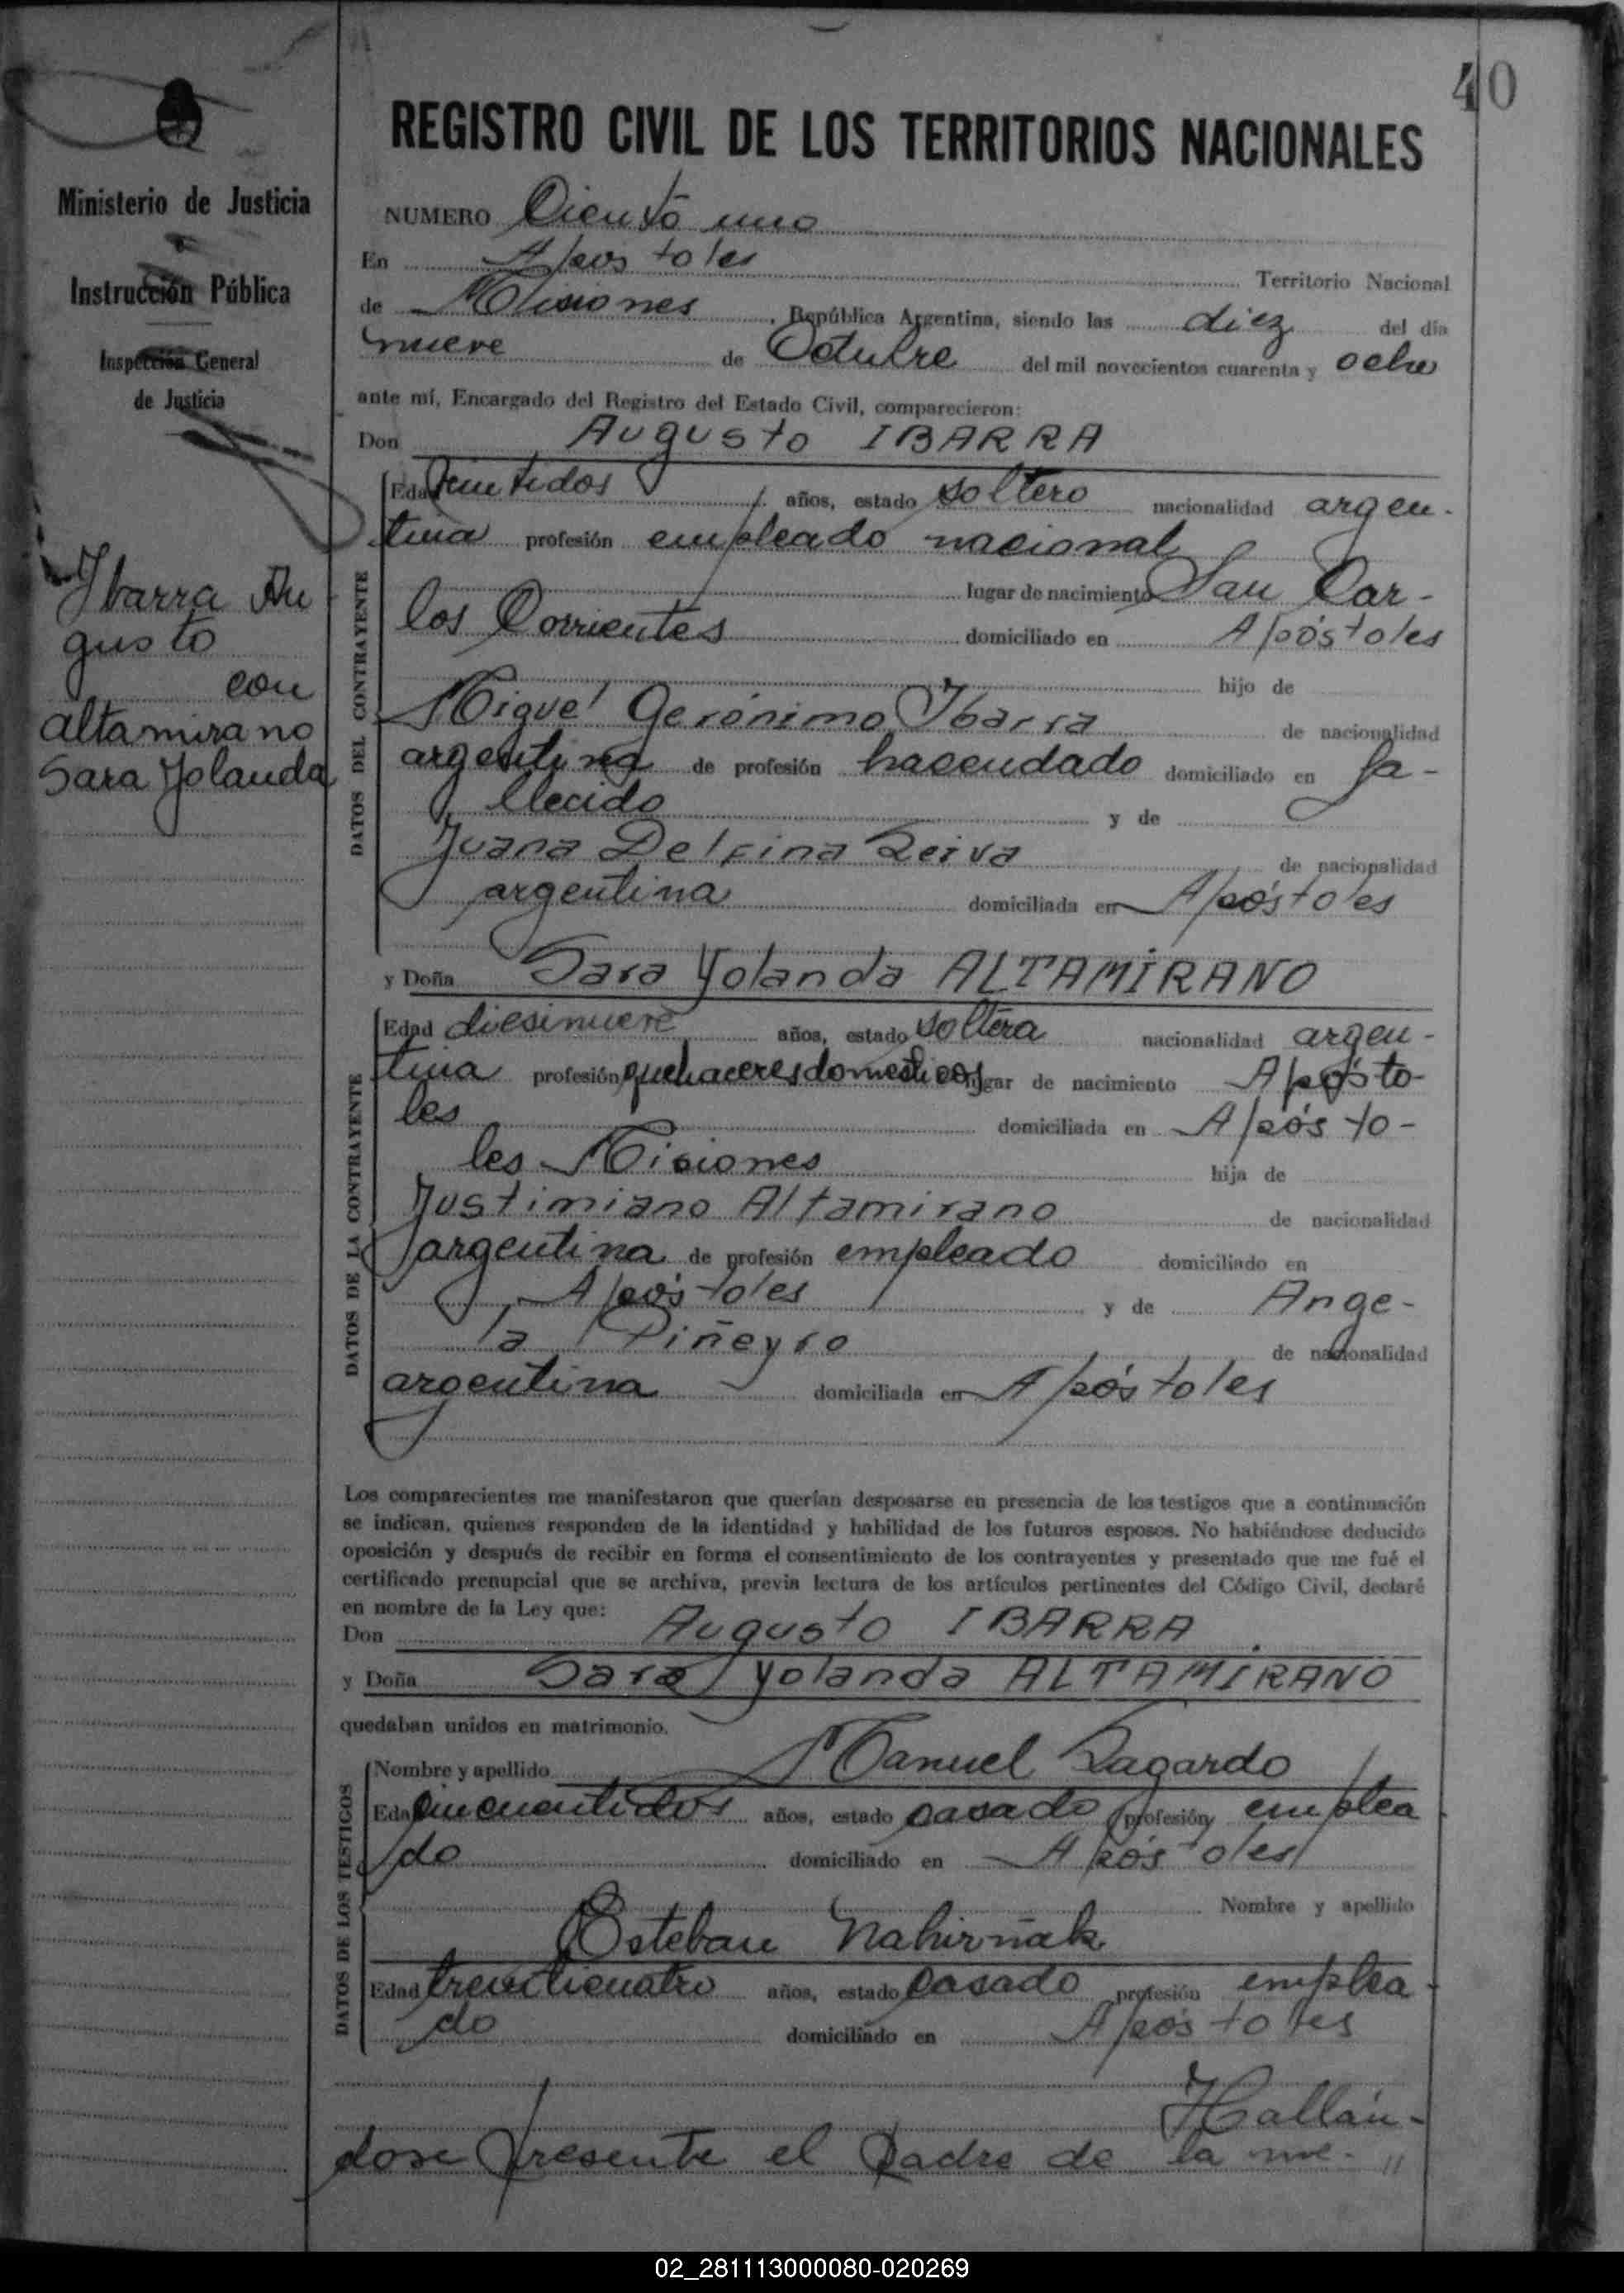 40
REGISTRO CIVIL DE LOS TERRITORIOS NACIONALES
Ministerio de Justicia
e
Instrucción Pública
Inspección General
de Justicia
Ibarra Au
gusto
con
altamirano
Sara Yolanda
NUMERO Ciento uno
En Apostoles Territorio Nacional
de Misiones, República Argentina, siendo las diez del día
nueve de Octubre del mil novecientos cuarenta y ocho
ante mí, Encargado del Registro del Estado Civil, comparecieron:
Don Augusto IBARRA
DATOS DEL CONTRAYENTE
Edad veintidos años, estado soltero nacionalidad argen-
tina profesión empleado nacional
lugar de nacimiento San Car-
los Corrientes domiciliado en Apóstoles
hijo de
Miguel Gerónimo Ibarra de nacionalidad
argentina de profesión hacendado domiciliado en fa-
llecido y de
Juana Delfina Leiva de nacionalidad
argentina domiciliada en Apóstoles
y Doña Sara Yolanda ALTAMIRANO
DATOS DE LA CONTRAYENTE
Edad diesinueve años, estado soltera nacionalidad argen-
tina profesión quehaceres domesticos lugar de nacimiento Apósto-
les domiciliada en Apósto-
les Misiones hija de
Justimiano Altamirano de nacionalidad
argentina de profesión empleado domiciliado en
Apóstoles y de Ange-
la Piñeyro de nacionalidad
argentina domiciliada en Apóstoles
Los comparecientes me manifestaron que querían desposarse en presencia de los testigos que a continuación
se indican, quienes responden de la identidad y habilidad de los futuros esposos. No habiéndose deducido
oposición y después de recibir en forma el consentimiento de los contrayentes y presentado que me fué el
certificado prenupcial que se archiva, previa lectura de los artículos pertinentes del Código Civil, declaré
en nombre de la Ley que:
Don Augusto IBARRA
y Doña Sara Yolanda ALTAMIRANO
quedaban unidos en matrimonio.
DATOS DE LOS TESTIGOS
Nombre y apellido Manuel Lagardo
Edad cincuentidos años, estado casado profesión emplea
do domiciliado en Apóstoles
Nombre y apellido
Esteban Nahirñak
Edad trenticuatro años, estado casado profesión emplea-
do domiciliado en Apóstoles
Hallán-
dose presente el padre de la me- "
02_281113000080-020269